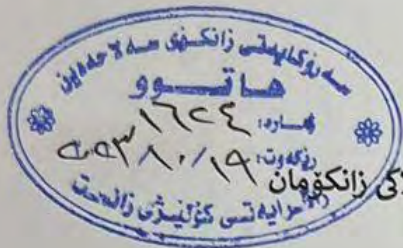 سەرۆکایەتی زانکۆی سەلاحەدین
هاتوو
ژمارە: ١٦٢٤
ڕێکەوت: ٢٠٢٣/١٠/١٩
زانکۆمان
کۆلێژی زانست